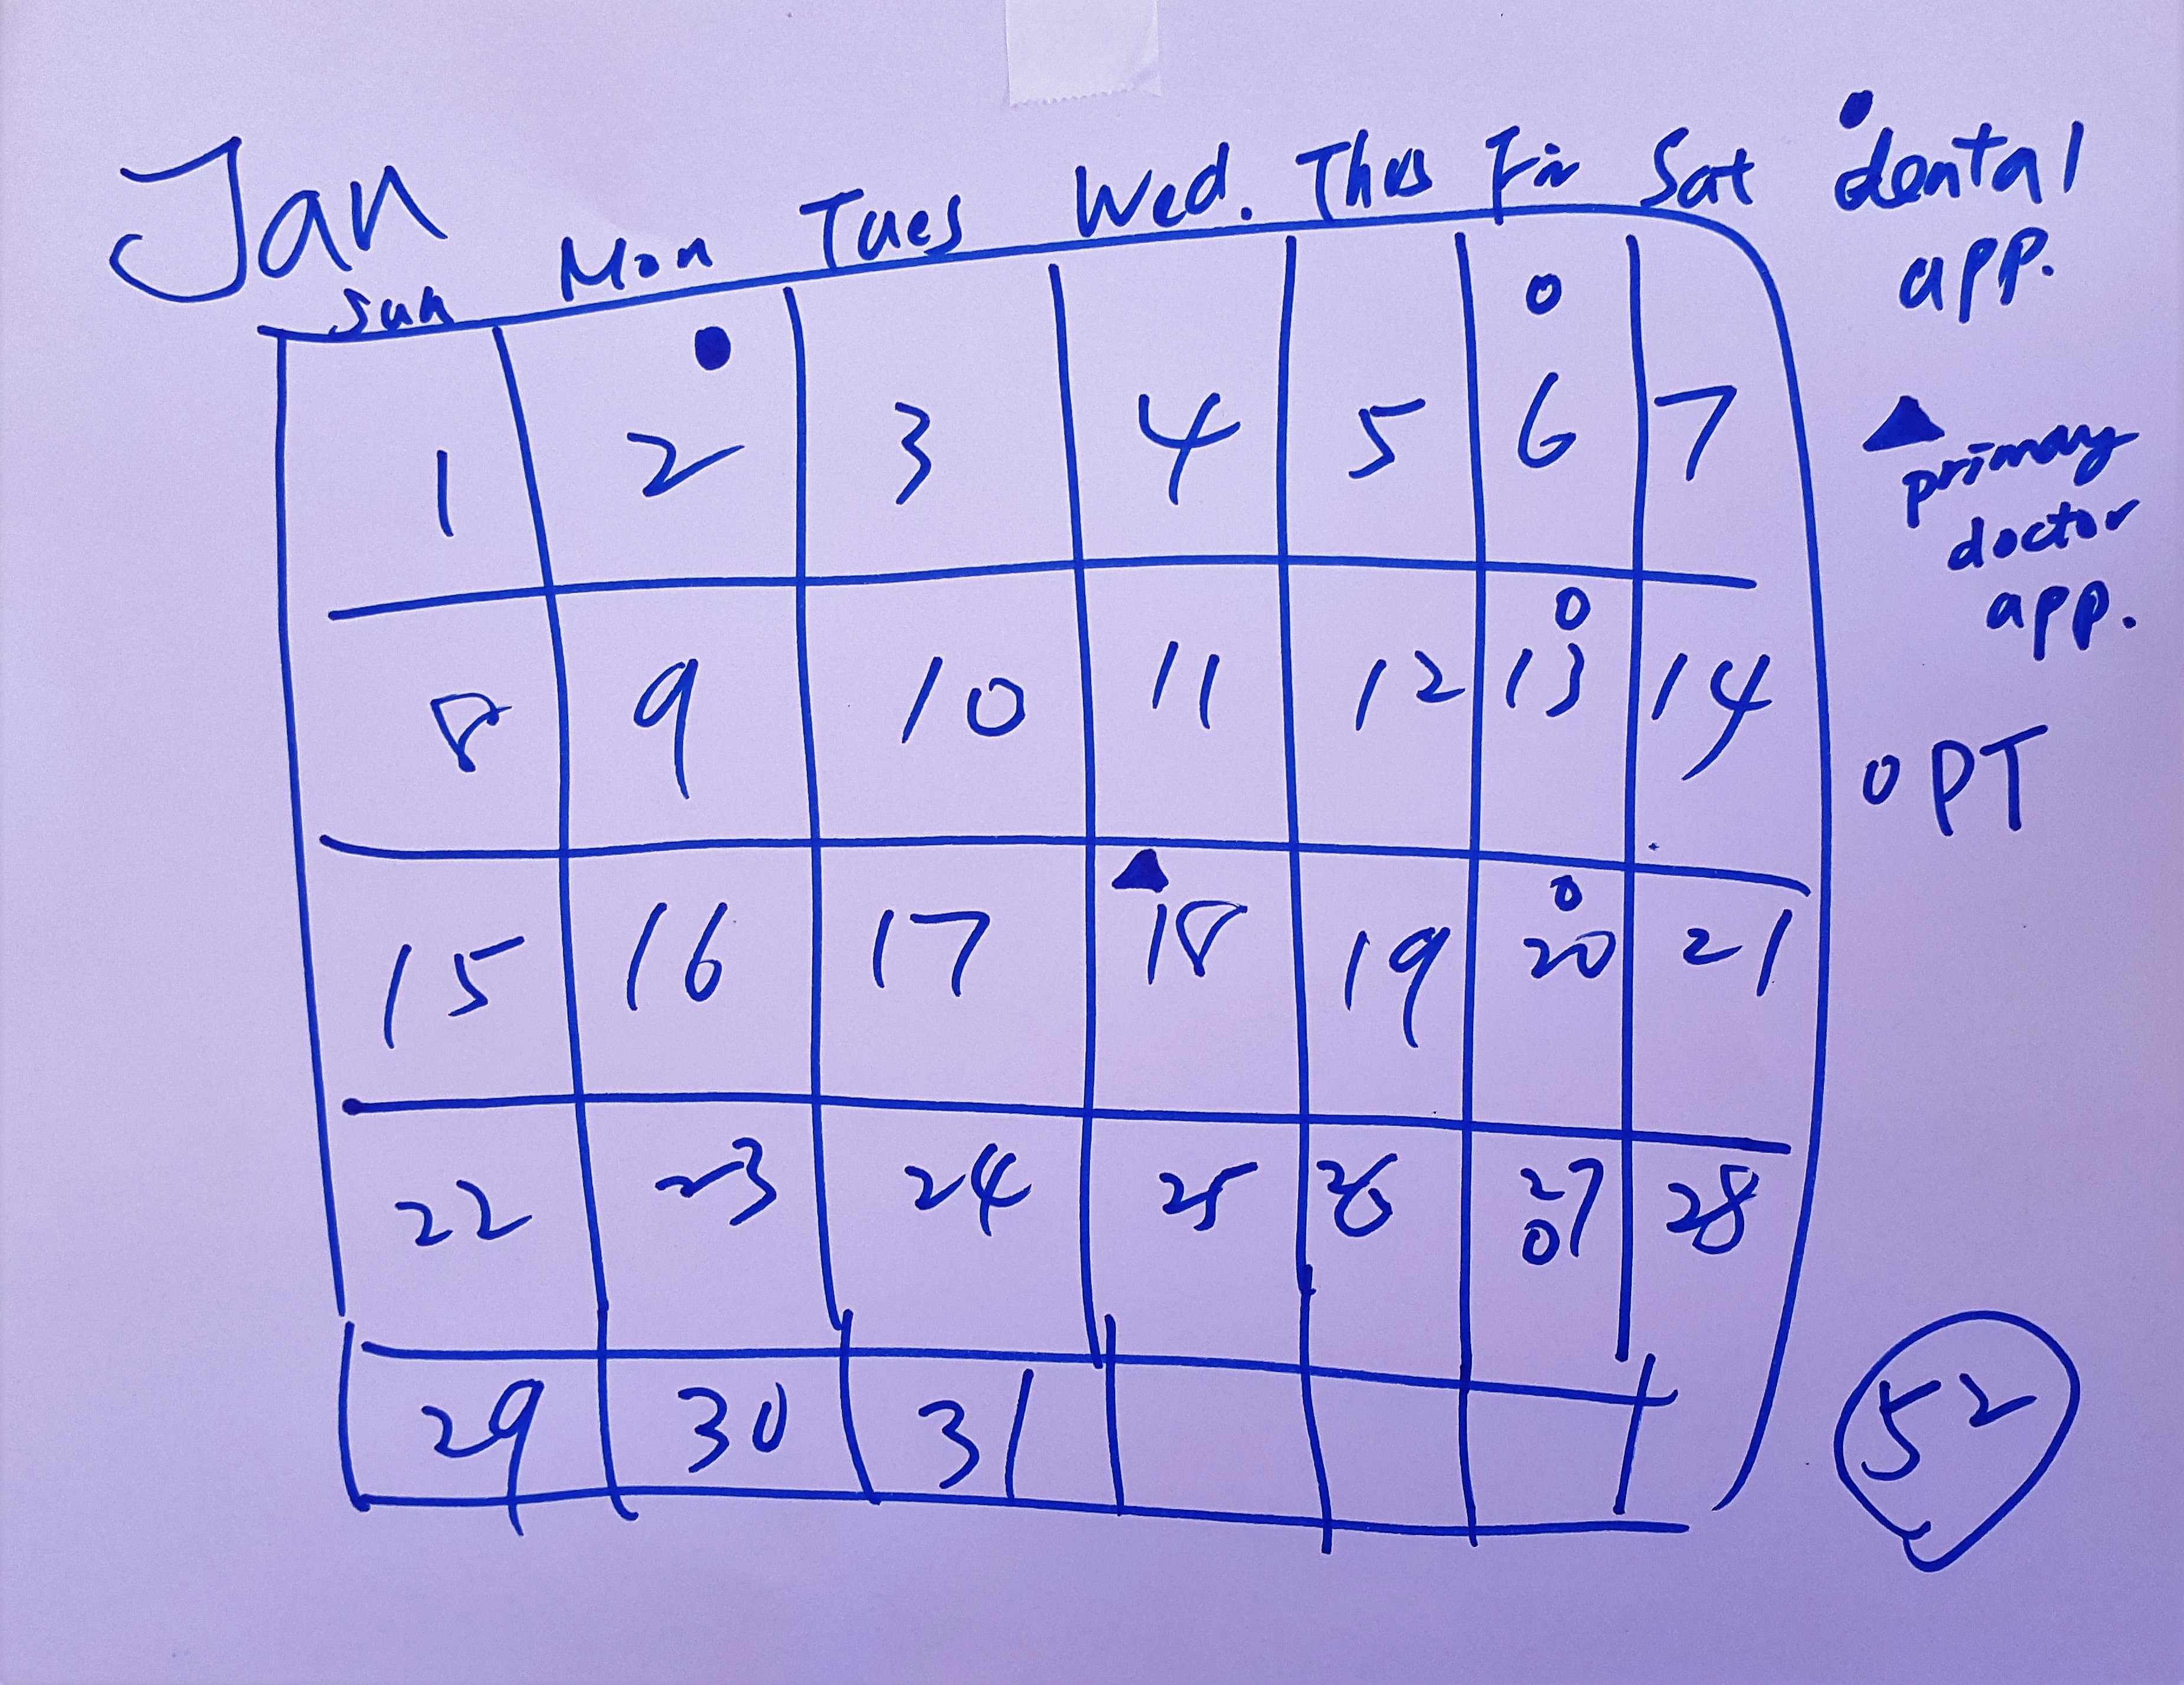 Jan
Sun Mon Tues Wed. Thus Fir Sat
1 2 3 4 5 6 7
8 9 10 11 12 13 14
15 16 17 18 19 20 21
22 23 24 25 26 27 28
29 30 31
dental
app.
primay
doctor
app.
PT
52